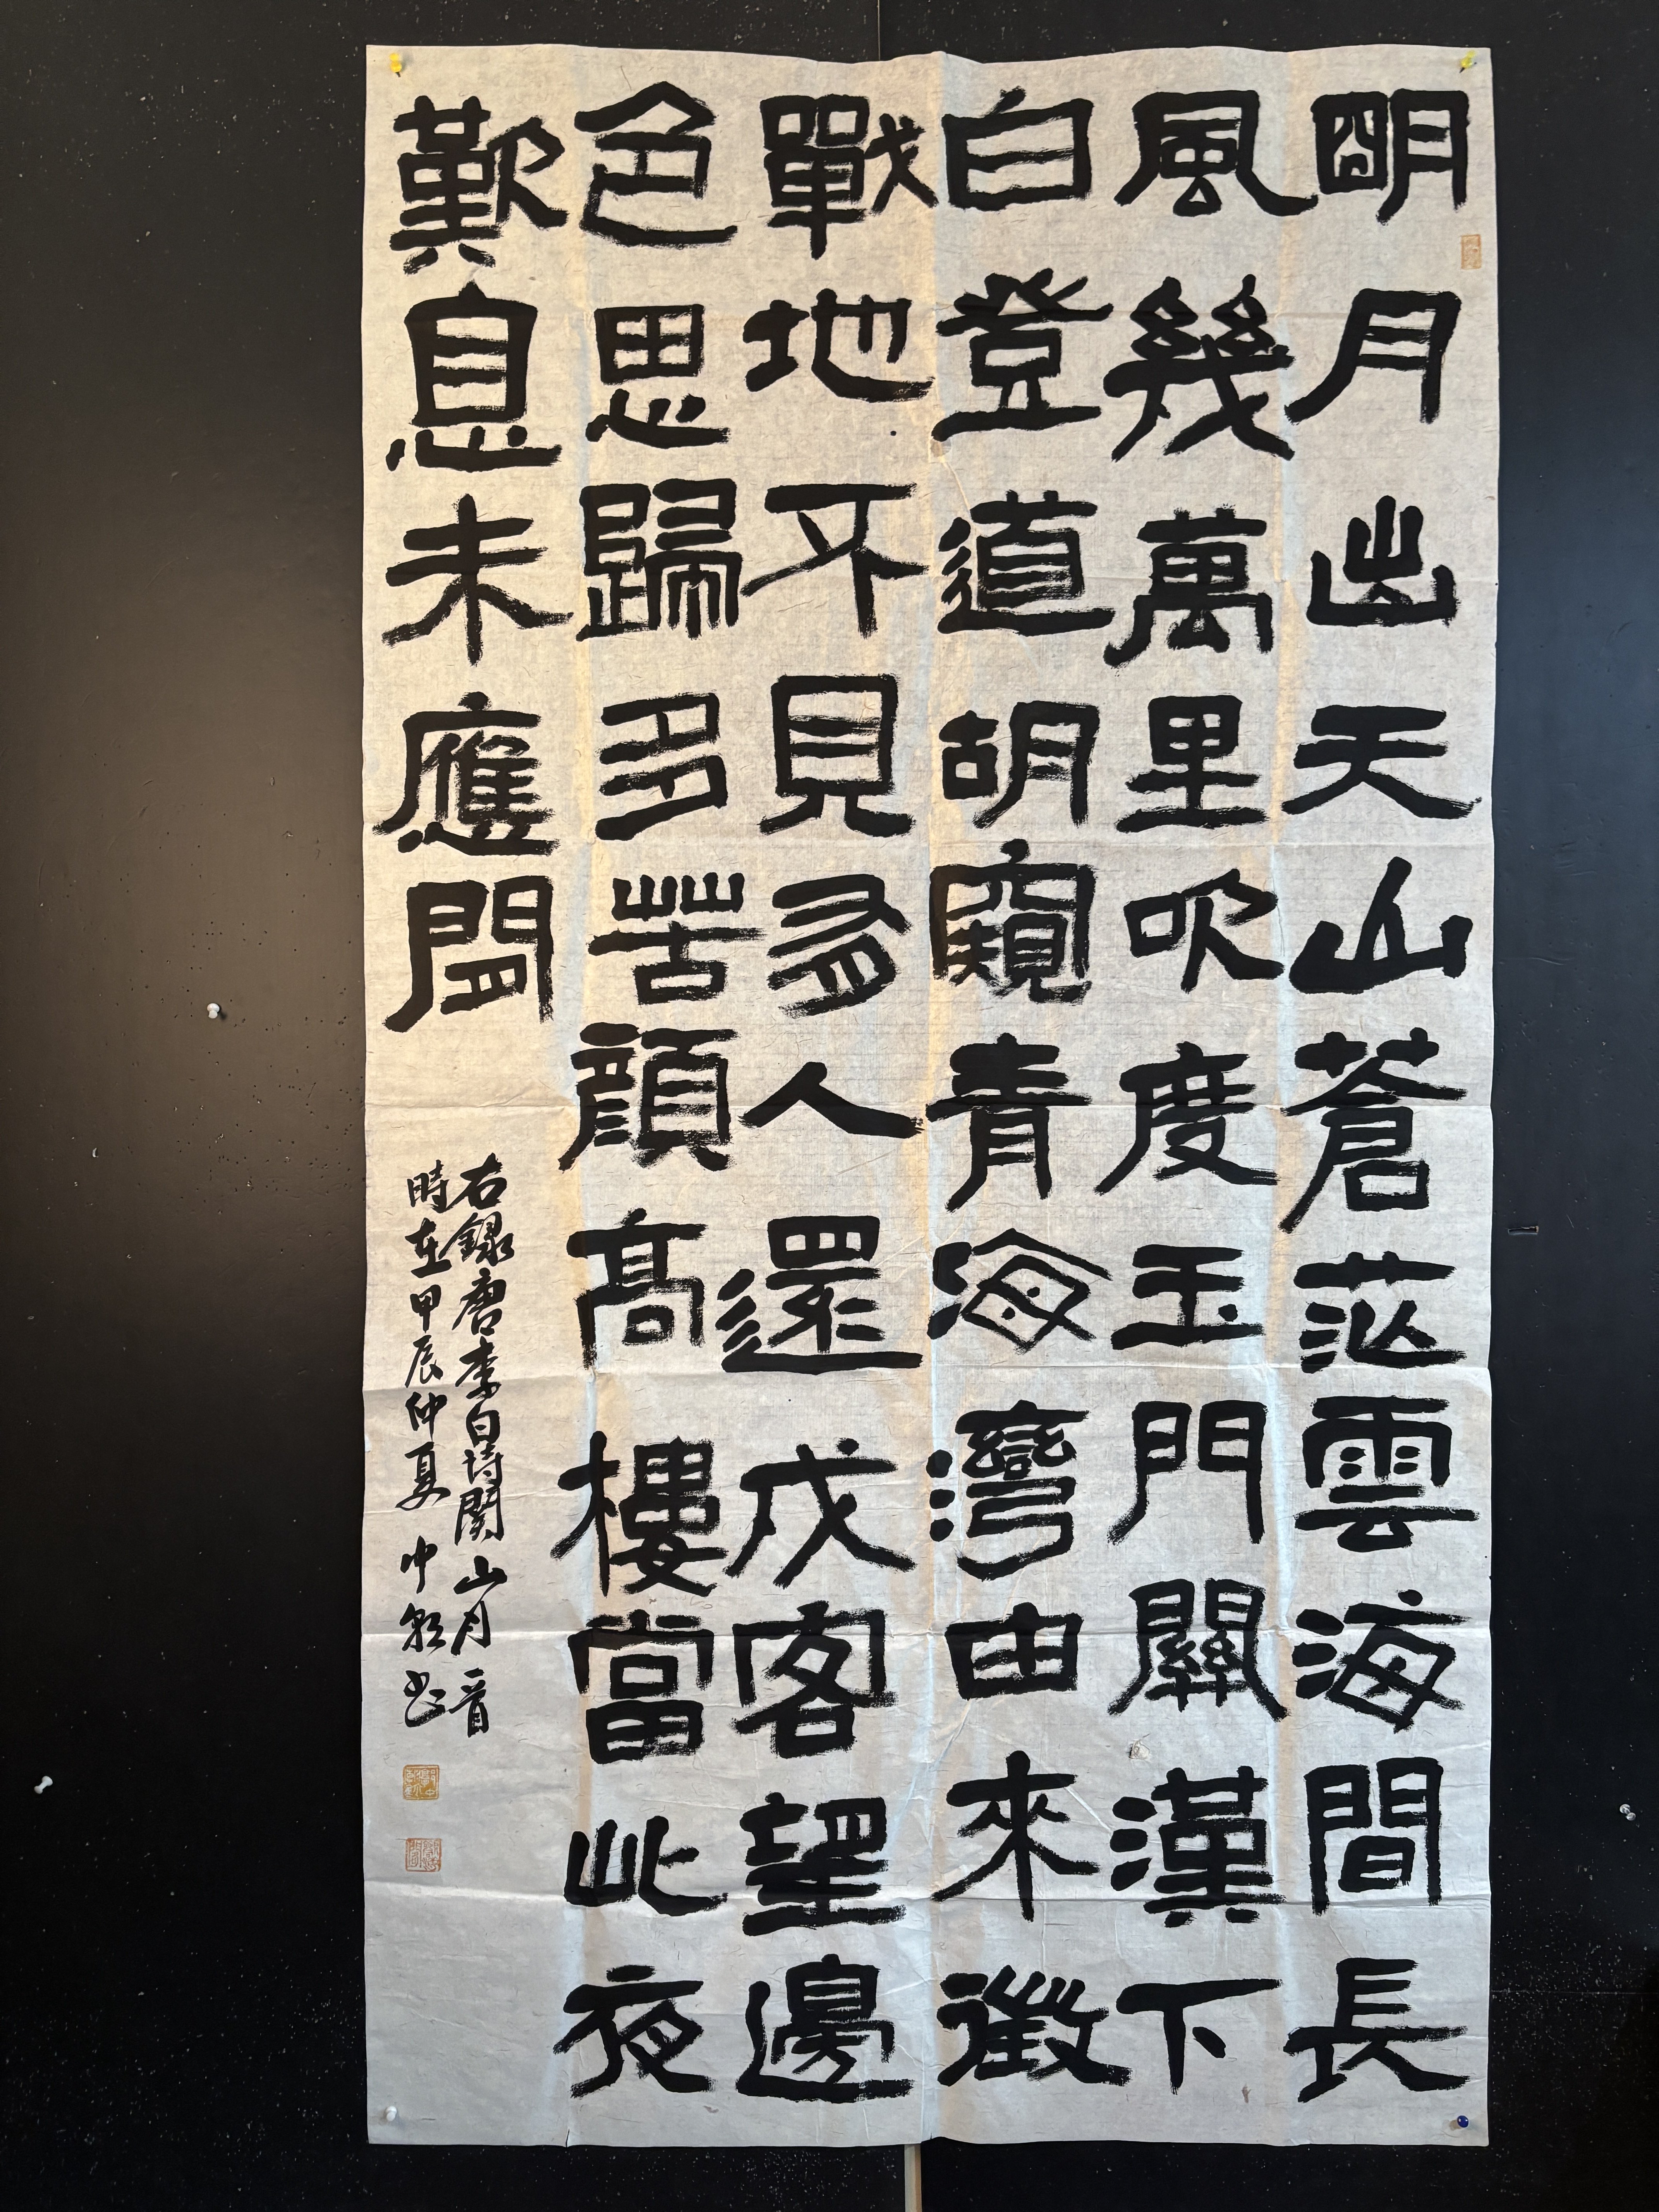 明月出天山蒼茫雲海間長
風幾萬里吹度玉門關漢下
白登道胡窺青海灣由來徵
戰地不見有人還戍客望邊
色思歸多苦顏高樓當此夜
歎息未應閒
右録唐李白诗関山月一首
時在甲辰仲夏中书